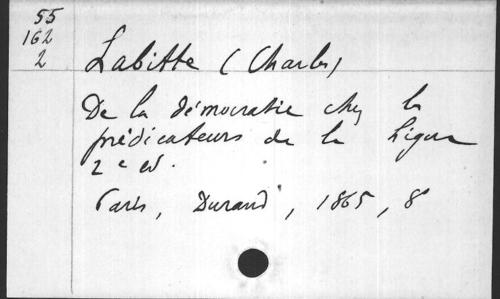 55
162
2
Labitte (Charles)
De la démocratie chez les
prédicateurs de la Ligue
2e ed.
Paris, Durand, 1865, 8°